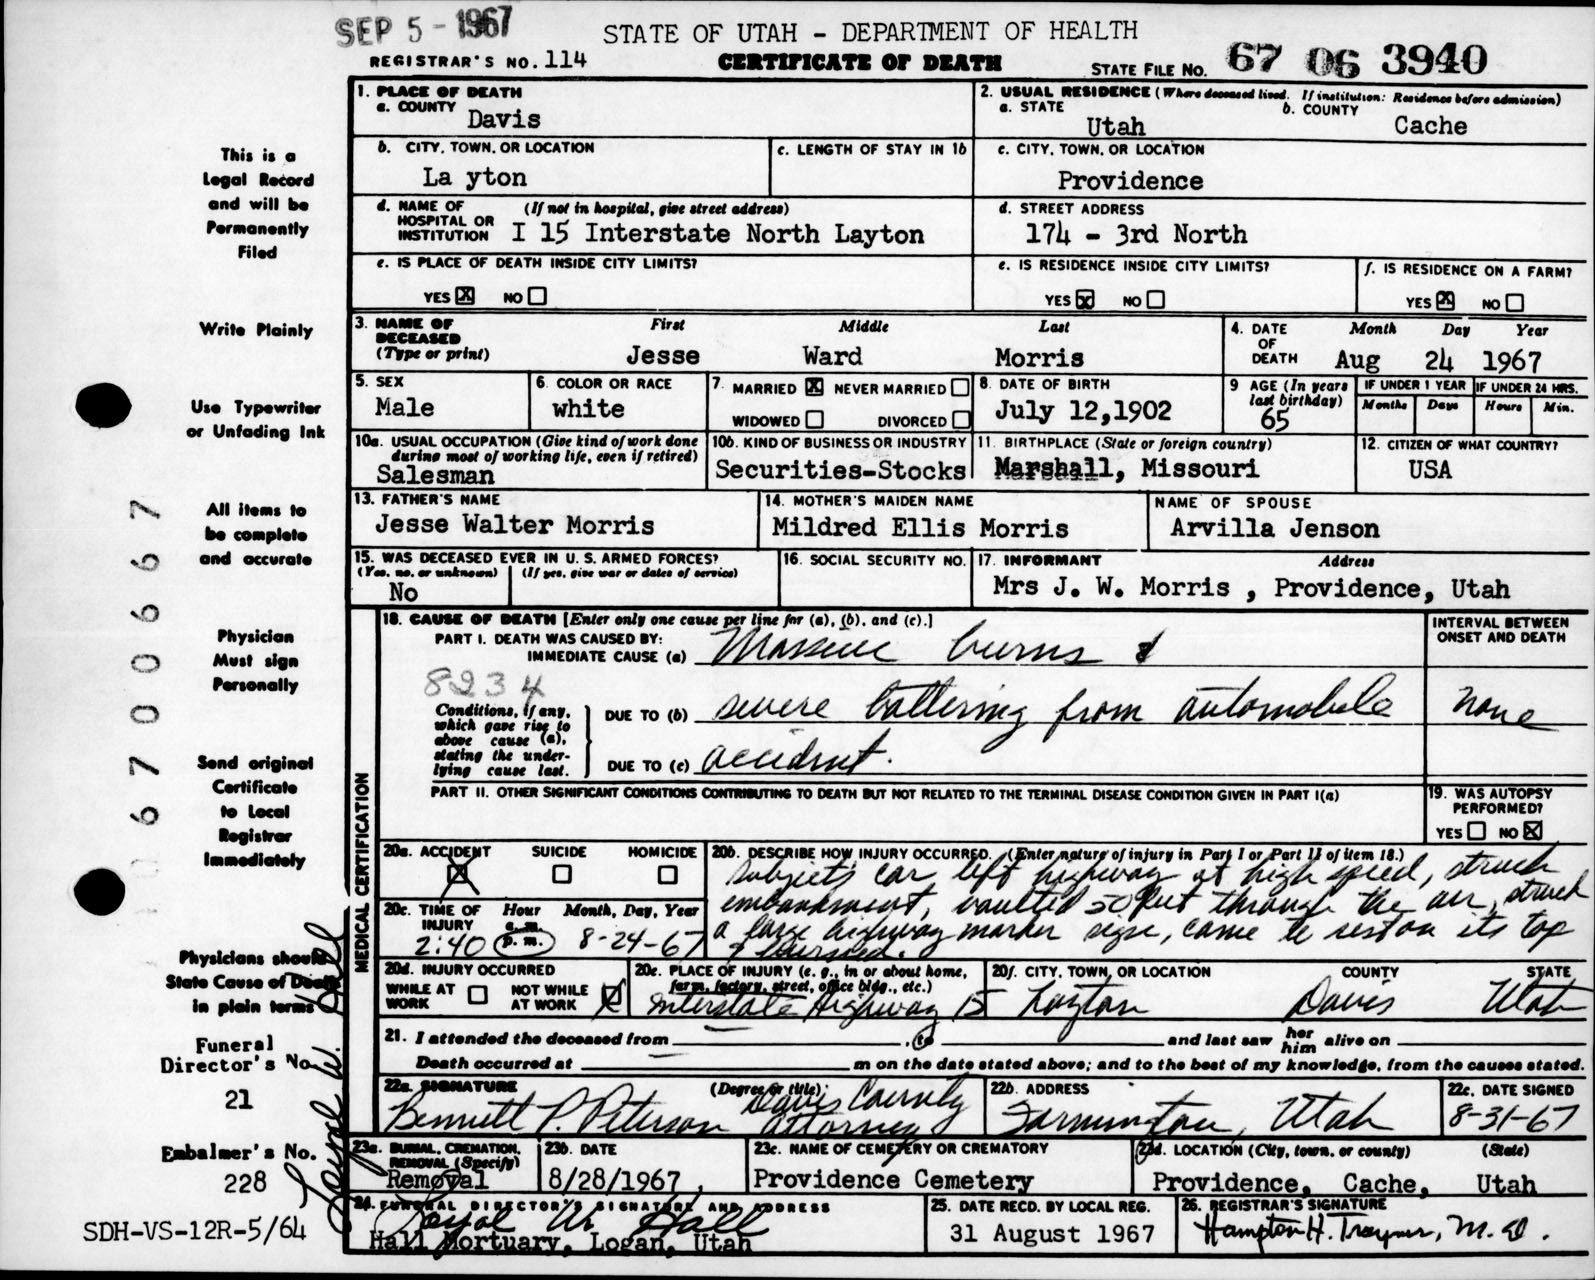 SEP 5 - 1967
STATE OF UTAH - DEPARTMENT OF HEALTH
REGISTRAR'S NO. 114
CERTIFICATE OF DEATH
STATE FILE NO. 67 06 3940
1. PLACE OF DEATH
a. COUNTY
Davis
2. USUAL RESIDENCE (Where deceased lived. If institution: Residence before admission)
a. STATE b. COUNTY
Utah Cache
b. CITY, TOWN, OR LOCATION
La yton
c. LENGTH OF STAY IN 1b
c. CITY, TOWN, OR LOCATION
Providence
d. NAME OF HOSPITAL OR INSTITUTION (If not in hospital, give street address)
I 15 Interstate North Layton
d. STREET ADDRESS
174 - 3rd North
e. IS PLACE OF DEATH INSIDE CITY LIMITS?
YES X NO
e. IS RESIDENCE INSIDE CITY LIMITS?
YES X NO
f. IS RESIDENCE ON A FARM?
YES X NO
3. NAME OF DECEASED (Type or print)
First Middle Last
Jesse Ward Morris
4. DATE OF DEATH
Month Day Year
Aug 24 1967
5. SEX
Male
6. COLOR OR RACE
white
7. MARRIED X NEVER MARRIED
WIDOWED DIVORCED
8. DATE OF BIRTH
July 12,1902
9 AGE (In years last birthday)
65
IF UNDER 1 YEAR
Months Days
IF UNDER 24 HRS.
Hours Min.
10a. USUAL OCCUPATION (Give kind of work done during most of working life, even if retired)
Salesman
10b. KIND OF BUSINESS OR INDUSTRY
Securities-Stocks
11. BIRTHPLACE (State or foreign country)
Marshall, Missouri
12. CITIZEN OF WHAT COUNTRY?
USA
13. FATHER'S NAME
Jesse Walter Morris
14. MOTHER'S MAIDEN NAME
Mildred Ellis Morris
NAME OF SPOUSE
Arvilla Jenson
15. WAS DECEASED EVER IN U. S. ARMED FORCES?
(Yes, no, or unknown) (If yes, give war or dates of service)
No
16. SOCIAL SECURITY NO.
17. INFORMANT Address
Mrs J. W. Morris , Providence, Utah
MEDICAL CERTIFICATION
18. CAUSE OF DEATH [Enter only one cause per line for (a), (b), and (c).]
INTERVAL BETWEEN ONSET AND DEATH
PART I. DEATH WAS CAUSED BY:
IMMEDIATE CAUSE (a) Massive burns &
8234
Conditions, if any, which gave rise to above cause (a), stating the underlying cause last.
DUE TO (b) severe battering from automobile none
DUE TO (c) accident.
PART II. OTHER SIGNIFICANT CONDITIONS CONTRIBUTING TO DEATH BUT NOT RELATED TO THE TERMINAL DISEASE CONDITION GIVEN IN PART I(a)
19. WAS AUTOPSY PERFORMED?
YES NO X
20a. ACCIDENT SUICIDE HOMICIDE
X
20b. DESCRIBE HOW INJURY OCCURRED. (Enter nature of injury in Part I or Part II of item 18.)
Subject's car left highway at high speed, struck
embankment, vaulted 50 feet through the air, struck
a large highway marker sign, came to rest on its top
& burned.
20c. TIME OF INJURY
Hour Month, Day, Year
a. m.
2:40 p. m. 8-24-67
20d. INJURY OCCURRED
WHILE AT WORK NOT WHILE AT WORK X
20e. PLACE OF INJURY (e. g., in or about home, farm, factory, street, office bldg., etc.)
Interstate Highway 15
20f. CITY, TOWN, OR LOCATION COUNTY STATE
Layton Davis Utah
21. I attended the deceased from , to and last saw her him alive on
Death occurred at m on the date stated above; and to the best of my knowledge, from the causes stated.
22a. SIGNATURE (Degree or title)
Bennett P. Peterson Davis County Attorney
22b. ADDRESS
Farmington, Utah
22c. DATE SIGNED
8-31-67
23a. BURIAL, CREMATION, REMOVAL (Specify)
Removal
23b. DATE
8/28/1967
23c. NAME OF CEMETERY OR CREMATORY
Providence Cemetery
23d. LOCATION (City, town, or county) (State)
Providence, Cache, Utah
24. FUNERAL DIRECTOR'S SIGNATURE AND ADDRESS
Loyal W. Hall
Hall Mortuary, Logan, Utah
25. DATE RECD. BY LOCAL REG.
31 August 1967
26. REGISTRAR'S SIGNATURE
Hampton H. Trayner, M.D.
This is a
Legal Record
and will be
Permanently
Filed
Write Plainly
Use Typewriter
or Unfading Ink
All items to
be complete
and accurate
Physician
Must sign
Personally
Send original
Certificate
to Local
Registrar
Immediately
Physicians should
State Cause of Death
in plain terms
Funeral
Director's No.
21
Embalmer's No.
228
SDH-VS-12R-5/64
67 00667